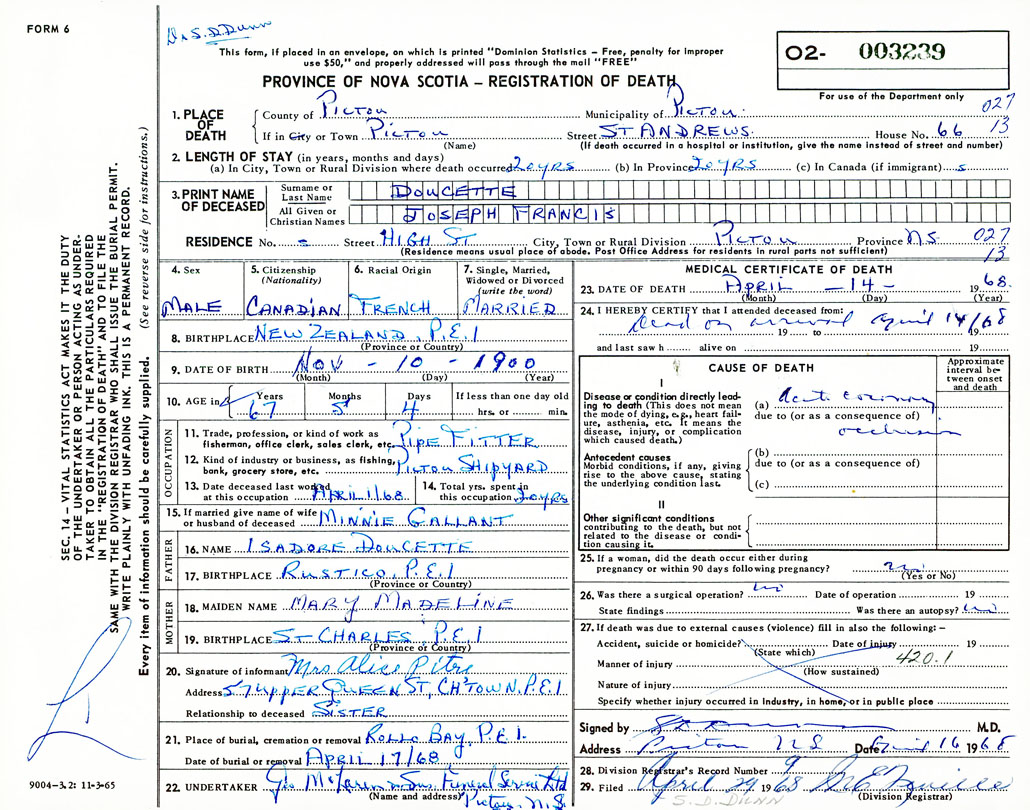 FORM 6
Dr S. D. Dunn
This form, if placed in an envelope, on which is printed "Dominion Statistics – Free, penalty for improper
use $50," and properly addressed will pass through the mail "FREE"
O2- 003239
For use of the Department only
PROVINCE OF NOVA SCOTIA – REGISTRATION OF DEATH
027
13
1. PLACE OF DEATH
County of PICTOU Municipality of PICTOU
If in City or Town PICTOU Street ST ANDREWS House No. 66
(Name) (If death occurred in a hospital or institution, give the name instead of street and number)
2. LENGTH OF STAY (in years, months and days)
(a) In City, Town or Rural Division where death occurred 20 YRS (b) In Province 20 YRS (c) In Canada (if immigrant)
3. PRINT NAME OF DECEASED
Surname or Last Name DOUCETTE
All Given or Christian Names JOSEPH FRANCIS
RESIDENCE No. Street HIGH ST City, Town or Rural Division PICTOU Province N.S. 027
(Residence means usual place of abode. Post Office Address for residents in rural parts not sufficient) 13
4. Sex MALE
5. Citizenship (Nationality) CANADIAN
6. Racial Origin FRENCH
7. Single, Married, Widowed or Divorced (write the word) MARRIED
8. BIRTHPLACE NEW ZEALAND, P.E.I
(Province or Country)
9. DATE OF BIRTH NOV - 10 - 1900
(Month) (Day) (Year)
10. AGE in Years 67 Months 5 Days 4 If less than one day old hrs. or min.
OCCUPATION
11. Trade, profession, or kind of work as fisherman, office clerk, sales clerk, etc. PIPE FITTER
12. Kind of industry or business, as fishing, bank, grocery store, etc. PICTOU SHIPYARD
13. Date deceased last worked at this occupation APRIL 1/68
14. Total yrs. spent in this occupation 20 YRS
15. If married give name of wife or husband of deceased MINNIE GALLANT
FATHER
16. NAME ISADORE DOUCETTE
17. BIRTHPLACE RUSTICO, P.E.I
(Province or Country)
MOTHER
18. MAIDEN NAME MARY MADELINE
19. BIRTHPLACE ST CHARLES, P.E.I
(Province or Country)
20. Signature of informant Mrs Alice Pitre
Address 57 UPPER QUEEN ST, CH'TOWN, P.E.I
Relationship to deceased SISTER
21. Place of burial, cremation or removal ROLLO BAY, P.E.I.
Date of burial or removal APRIL 17/68
22. UNDERTAKER Funeral Service Ltd
(Name and address) Pictou, N.S.
MEDICAL CERTIFICATE OF DEATH
23. DATE OF DEATH APRIL - 14 - 1968.
(Month) (Day) (Year)
24. I HEREBY CERTIFY that I attended deceased from:
Dead on arrival April 14/68
19 to 19
and last saw h alive on 19
CAUSE OF DEATH
Approximate interval between onset and death
I
Disease or condition directly leading to death (This does not mean the mode of dying, e.g., heart failure, asthenia, etc. It means the disease, injury, or complication which caused death.)
(a) Acute coronary
due to (or as a consequence of)
occlusion
Antecedent causes
Morbid conditions, if any, giving rise to the above cause, stating the underlying condition last.
(b)
due to (or as a consequence of)
(c)
II
Other significant conditions contributing to the death, but not related to the disease or condition causing it.
25. If a woman, did the death occur either during pregnancy or within 90 days following pregnancy? no
(Yes or No)
26. Was there a surgical operation? no Date of operation 19
State findings Was there an autopsy? no
27. If death was due to external causes (violence) fill in also the following:–
Accident, suicide or homicide? Date of injury 19
(State which) 420.1
Manner of injury
(How sustained)
Nature of injury
Specify whether injury occurred in industry, in home, or in public place
Signed by M.D.
Address Pictou N S Date April 16 1968
28. Division Registrar's Record Number 9
29. Filed April 29 1968
(Division Registrar)
S. D. DUNN
SEC. 14 – VITAL STATISTICS ACT MAKES IT THE DUTY
OF THE UNDERTAKER OR PERSON ACTING AS UNDER-
TAKER TO OBTAIN ALL THE PARTICULARS REQUIRED
IN THE "REGISTRATION OF DEATH" AND TO FILE THE
SAME WITH THE DIVISION REGISTRAR WHO SHALL ISSUE THE BURIAL PERMIT.
WRITE PLAINLY WITH UNFADING INK. THIS IS A PERMANENT RECORD.
Every item of information should be carefully supplied. (See reverse side for instructions.)
9004–3.2: 11-3-65